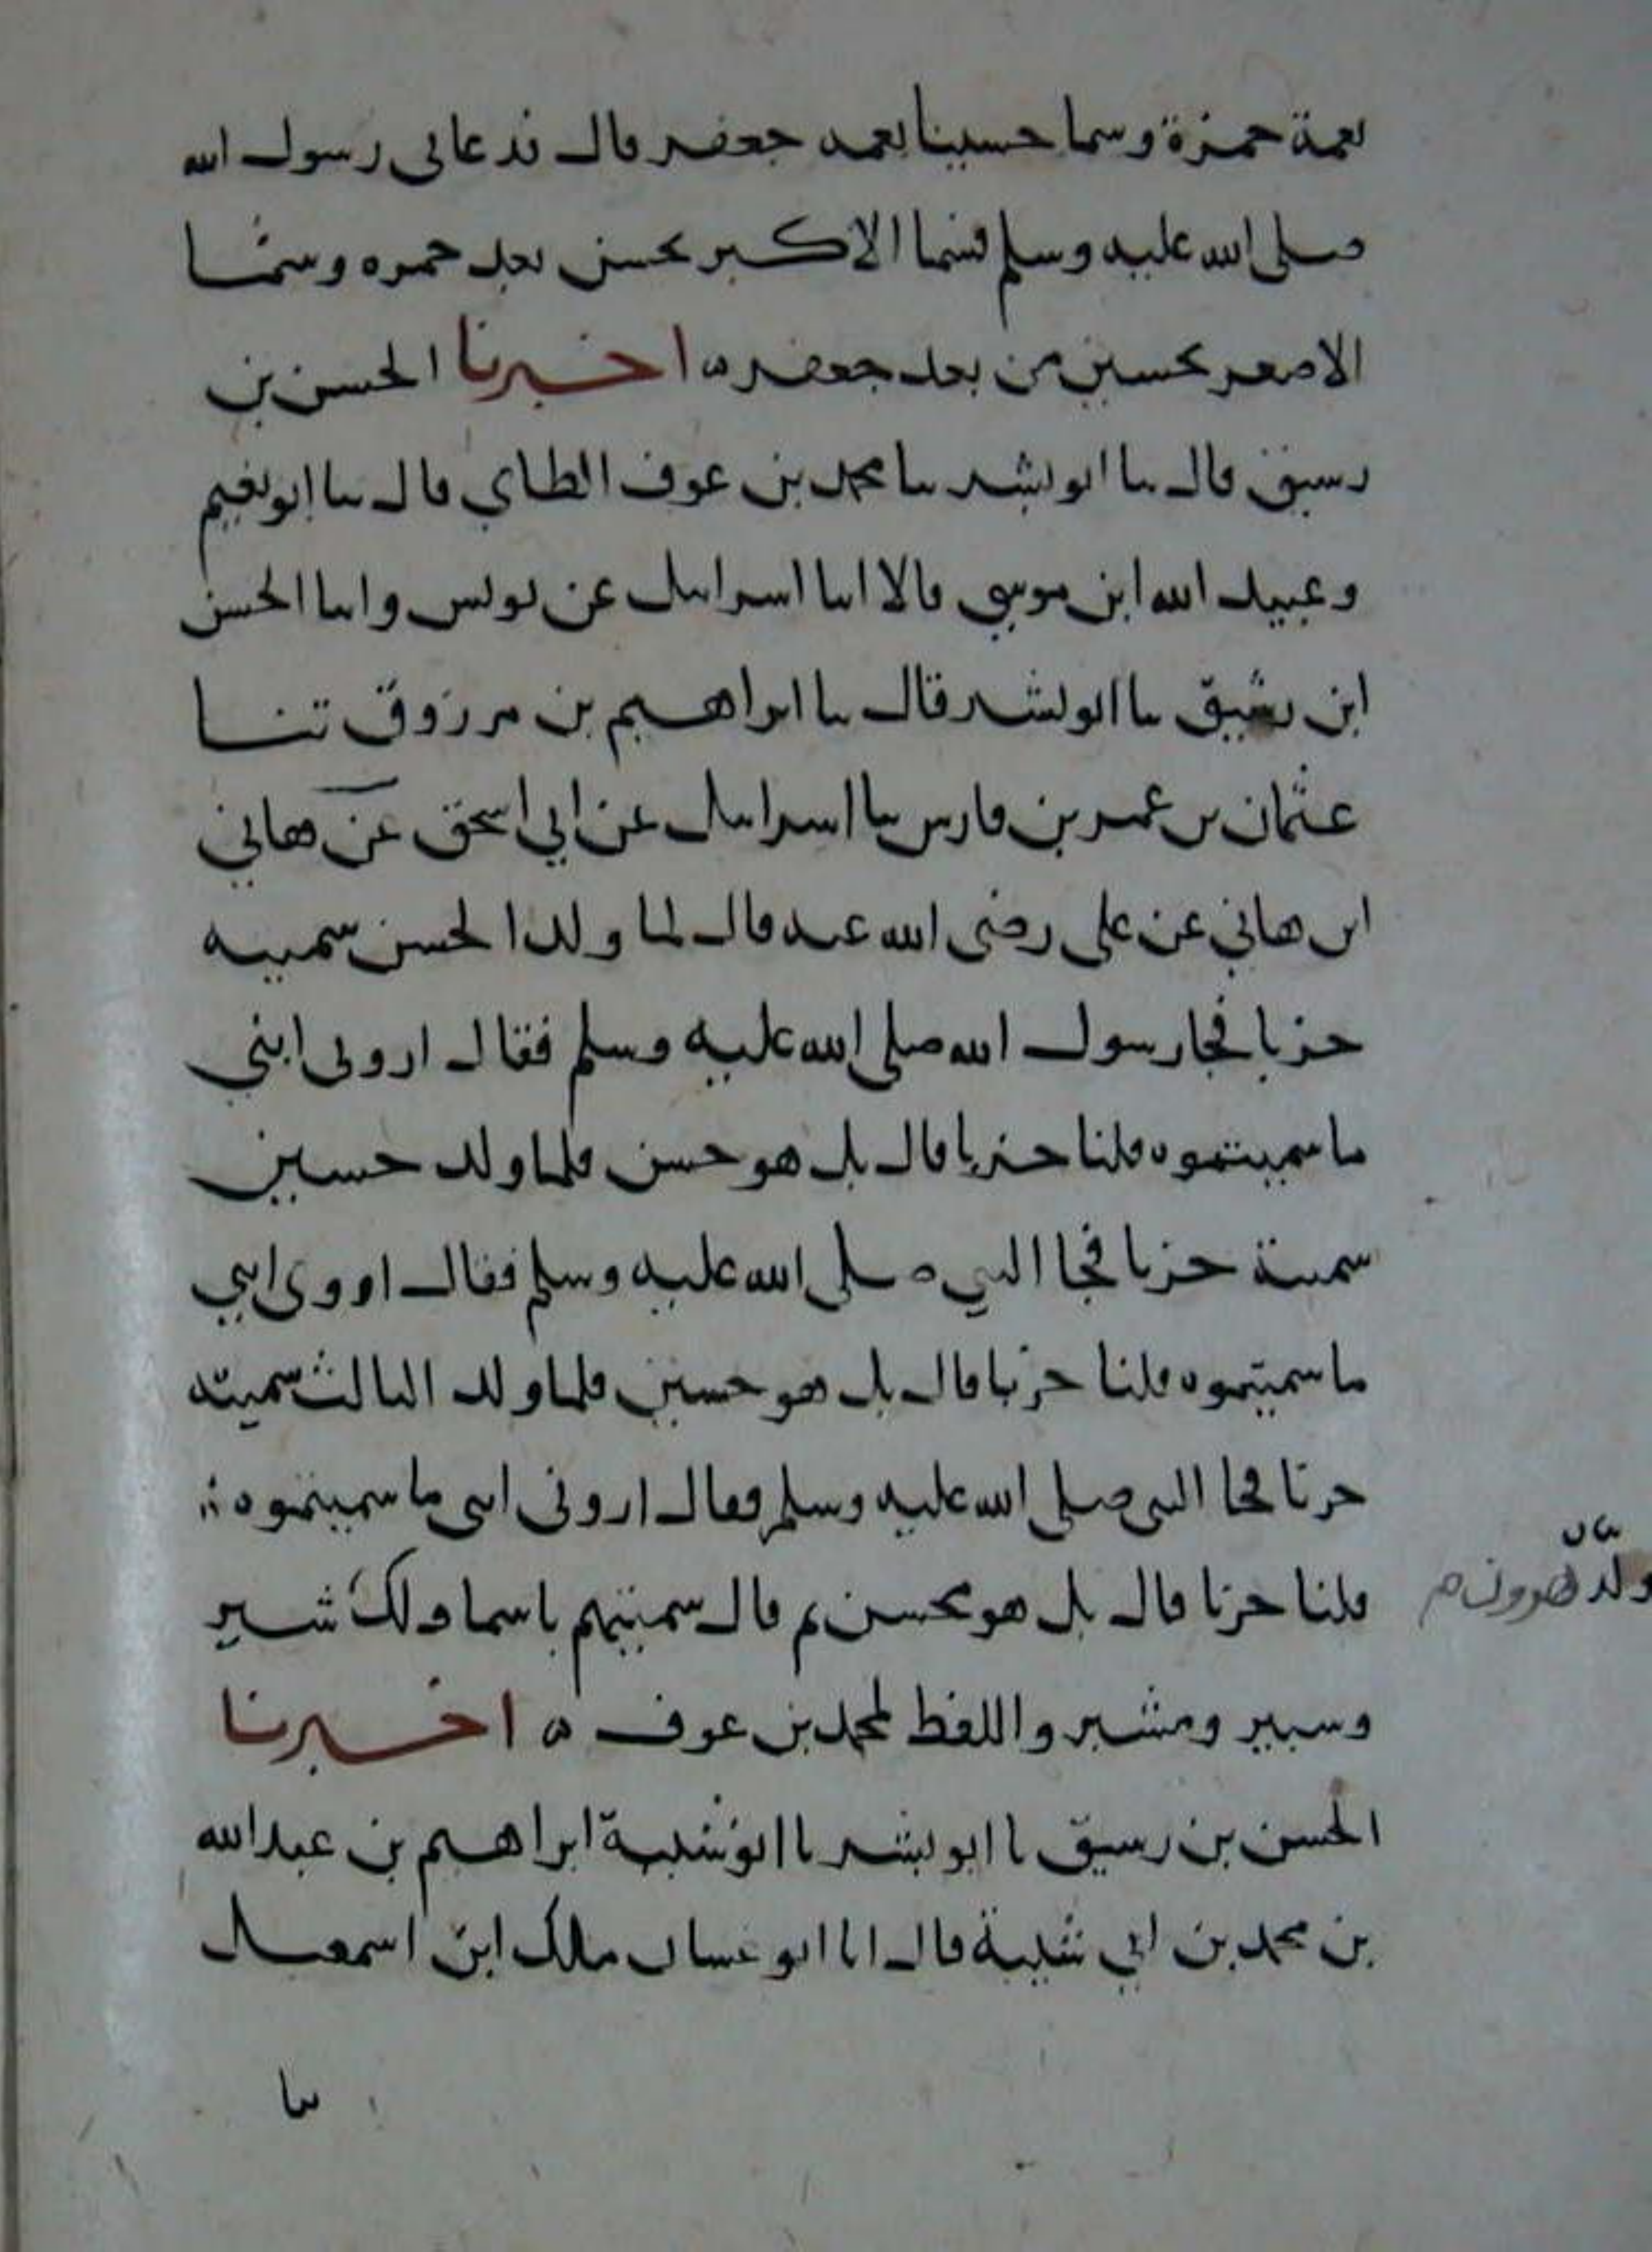 بعمة حمزة وسما حسينا بعمه جعفر قال فدعانى رسول الله
صلى الله عليه وسلم فسما الاكبر بحسن بعد حمزه وسمّا
الاصغر بحسين من بعد جعفر ه اخبرنا الحسن بن
رسيق قال ىنا ابو بشر ىنا محمد بن عوف الطاي قال ىنا ابو نعيم
وعبيد الله ابن موسى قالا انبا اسراىيل عن يونس وانبا الحسن
ابن رشيق ىنا ابو بشر قال ىنا ابراهيم بن مرزوق ثنا
عثمان بن عمر بن فارس ىنا اسراىيل عن ابي اسحق عن هاني
ابن هاني عن على رضى الله عنه قال لما ولد الحسن سميته
حزبا فجا رسول الله صلى الله عليه وسلم فقال ارونى ابني
ما سميتموه قلنا حزبا قال بل هو حسن فلما ولد حسين
سميتة حزبا فجا النبي صلى الله عليه وسلم فقال اروى ابني
ما سميتموه قلنا حزبا قال بل هو حسين فلما ولد الثالث سميته
حربا فجا النبى صلى الله عليه وسلم فقال ارونى ابنى ما سميتموه
قلنا حربا قال بل هو محسن ثم قال سميتهم باسما ولد شبر
وشبير ومشبر واللفظ لمحمد بن عوف ه اخبرنا
الحسن بن رسيق نا ابو بشر نا ابو شيبة ابراهيم بن عبد الله
بن محمد بن ابي شيبة قال انا ابو غسان ملك ابن اسمعيل
ىنا
ولد هرون م